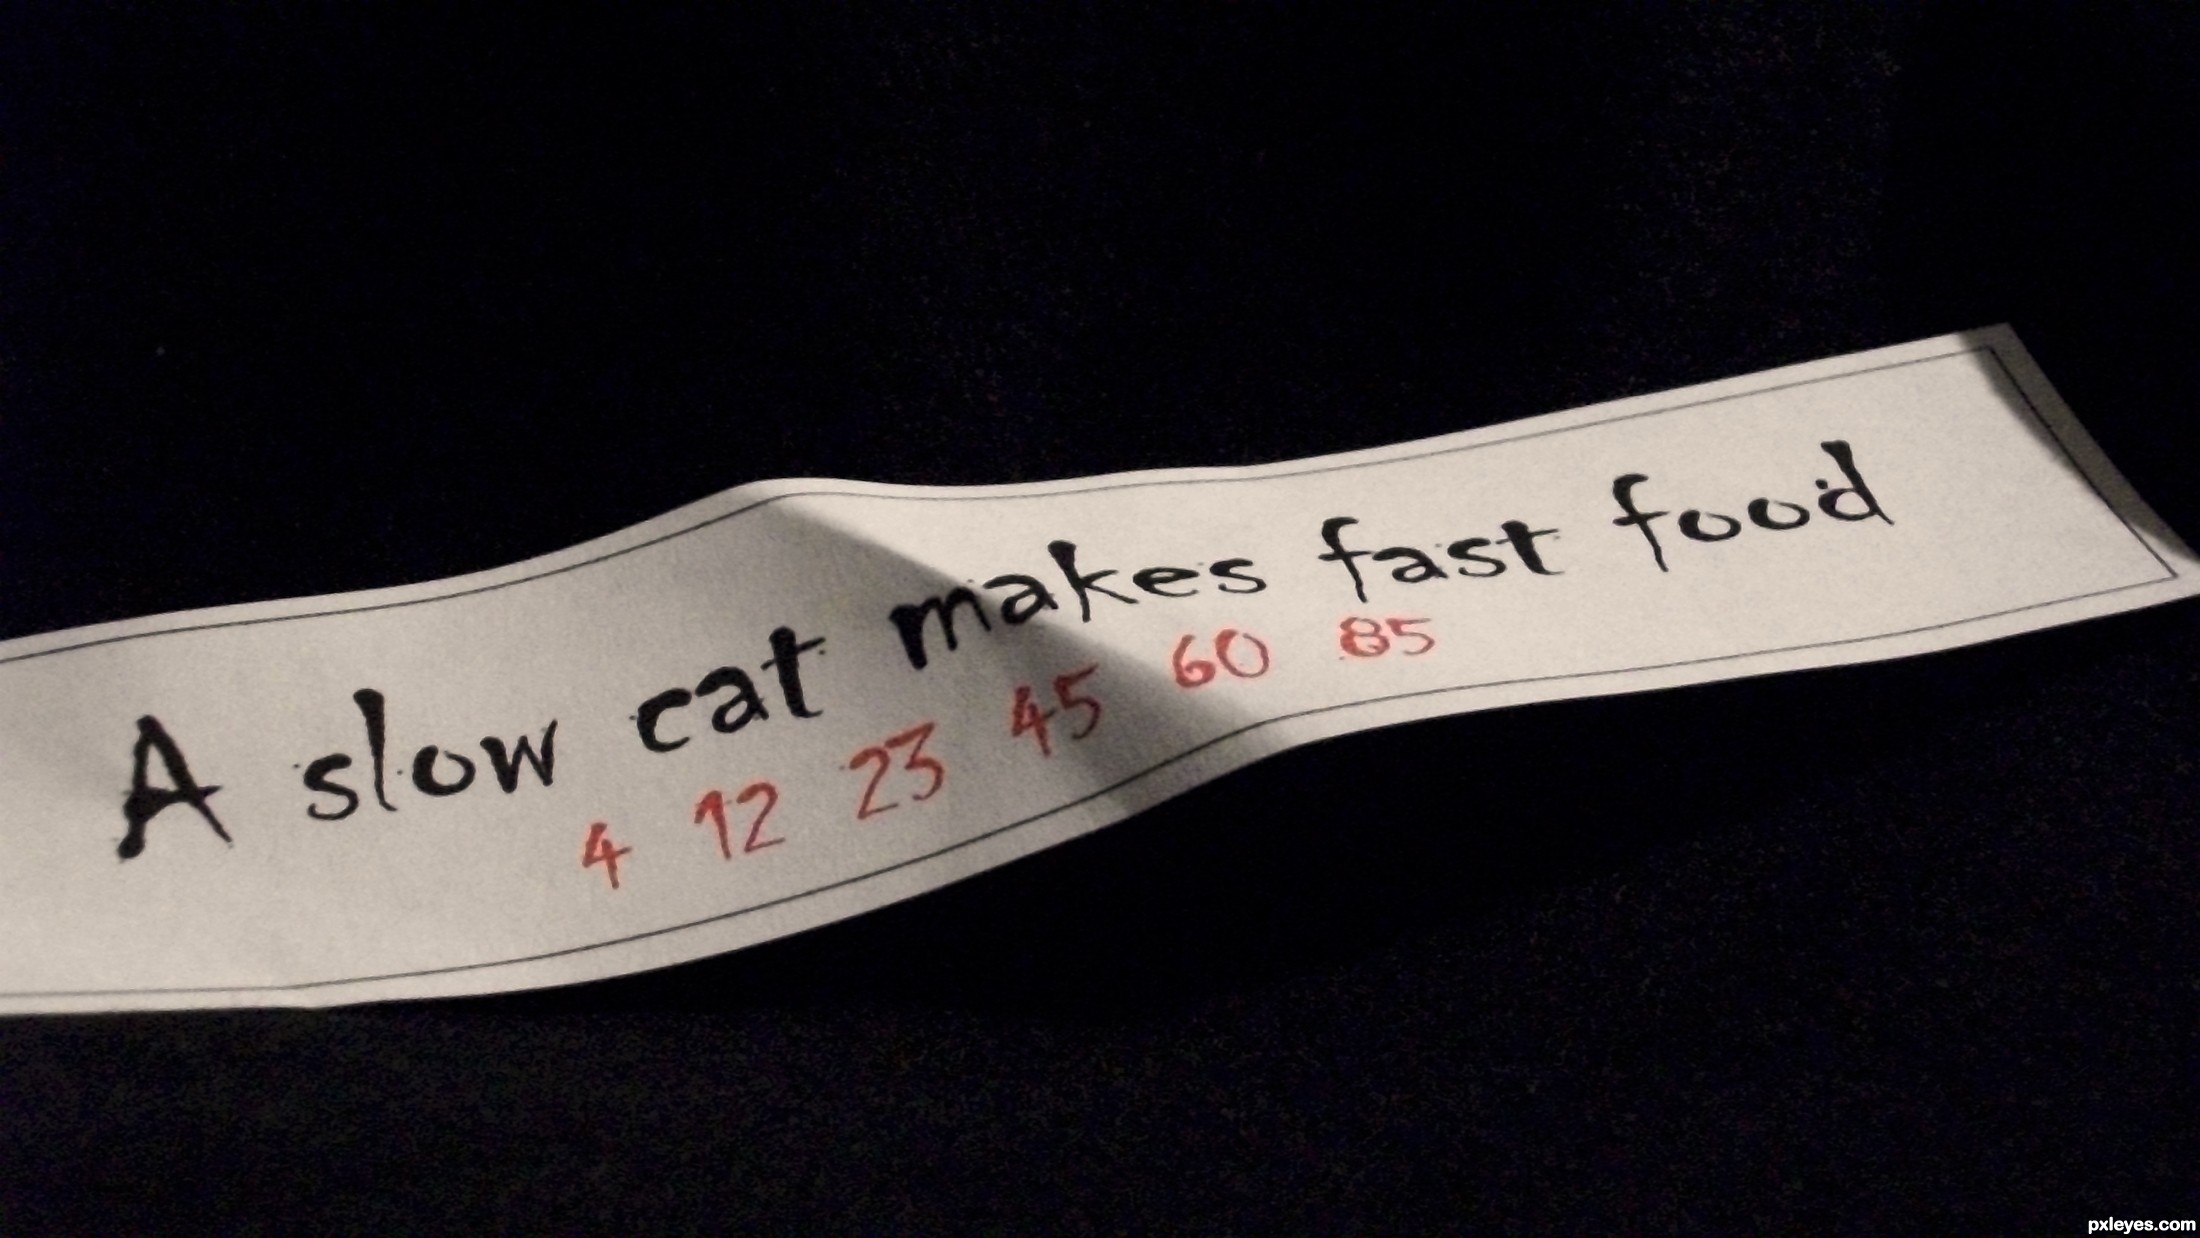 A slow cat makes fast food
4 12 23 45 60 85
pxleyes.com